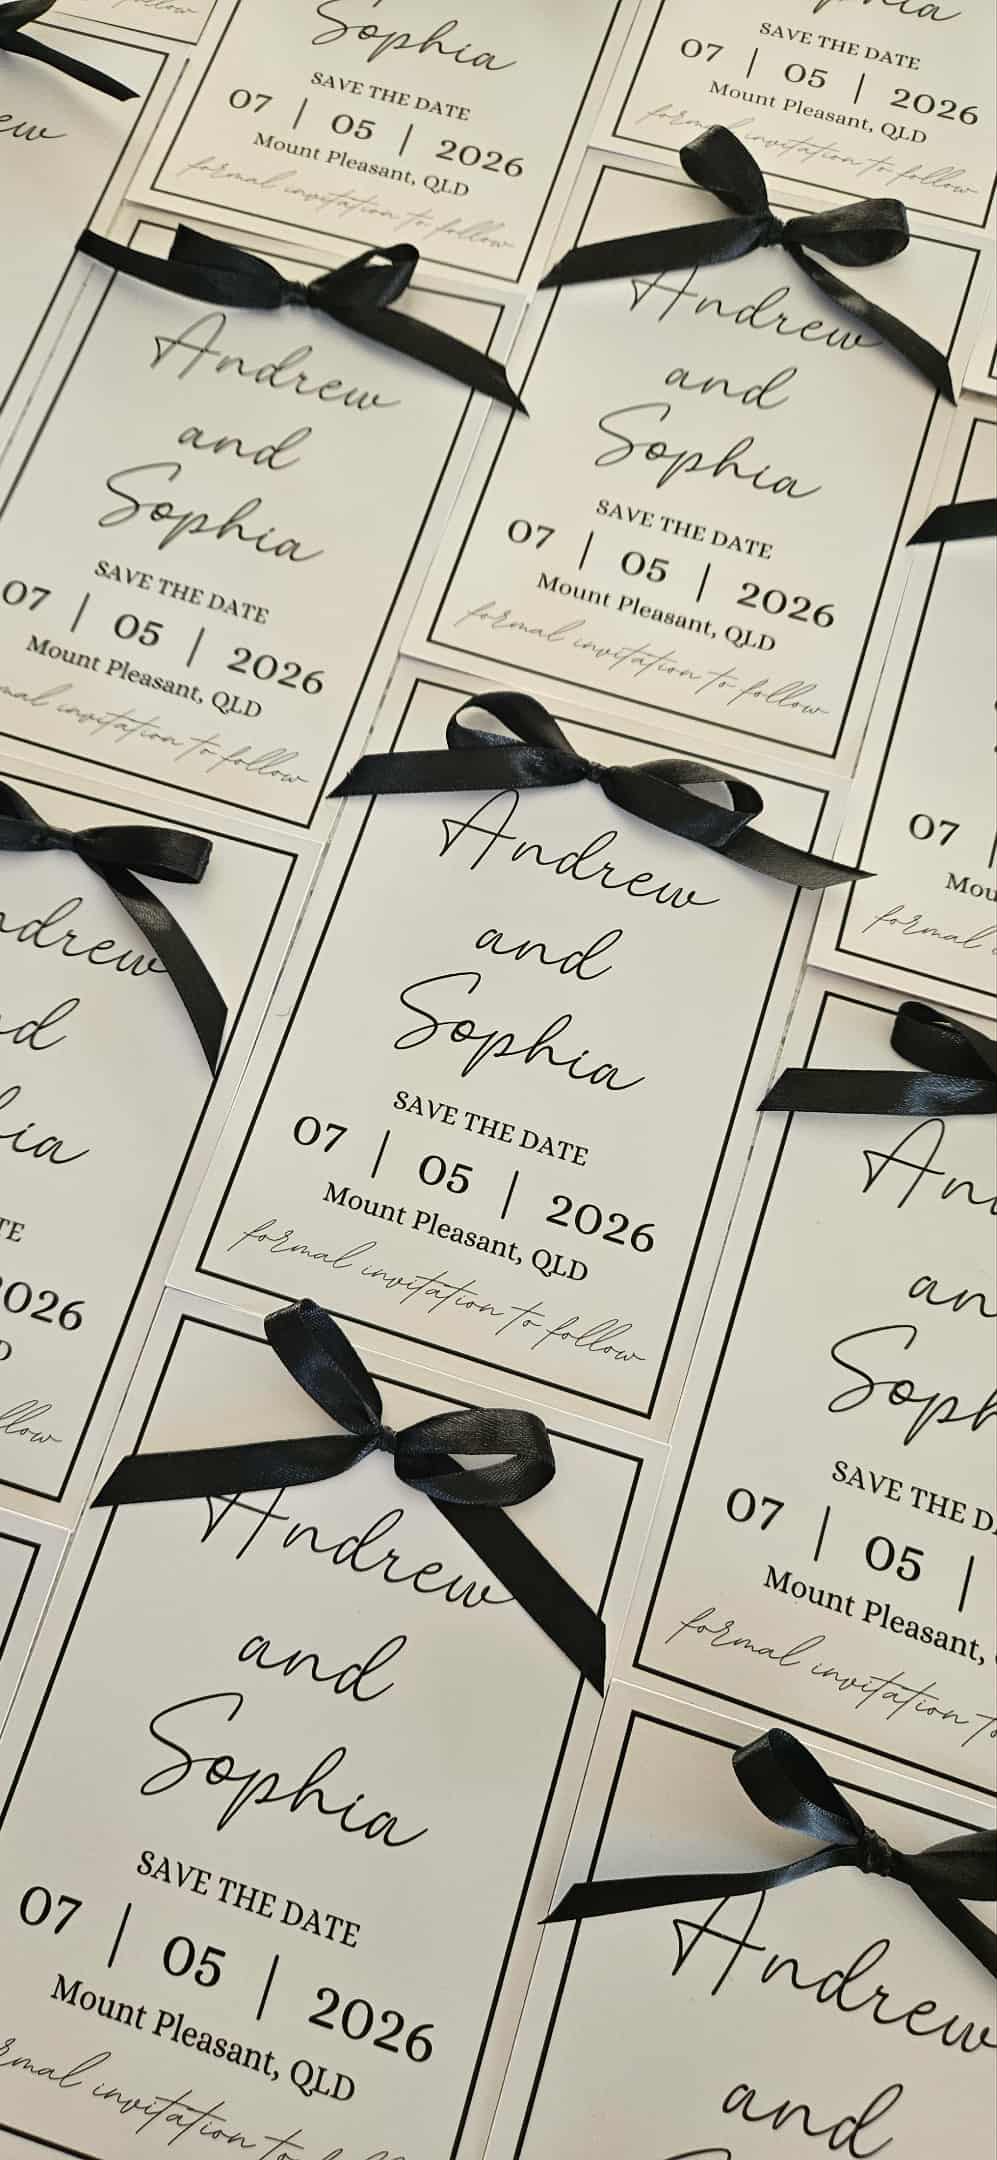 Sophia
SAVE THE DATE
07 | 05 | 2026
Mount Pleasant, QLD
formal invitation to follow
SAVE THE DATE
07 | 05 | 2026
Mount Pleasant, QLD
formal invitation to follow
Andrew
and
Sophia
SAVE THE DATE
07 | 05 | 2026
Mount Pleasant, QLD
invitation to follow
Andrew
and
Sophia
SAVE THE DATE
07 | 05 | 2026
Mount Pleasant, QLD
formal invitation to follow
07
formal
Andrew
and
Sophia
SAVE THE DATE
07 | 05 | 2026
Mount Pleasant, QLD
formal invitation to follow
2026
SAVE THE
07 | 05 |
Mount Pleasant,
formal invitation to
Andrew
and
Sophia
SAVE THE DATE
07 | 05 | 2026
Mount Pleasant, QLD
invitation to
Andrew
and